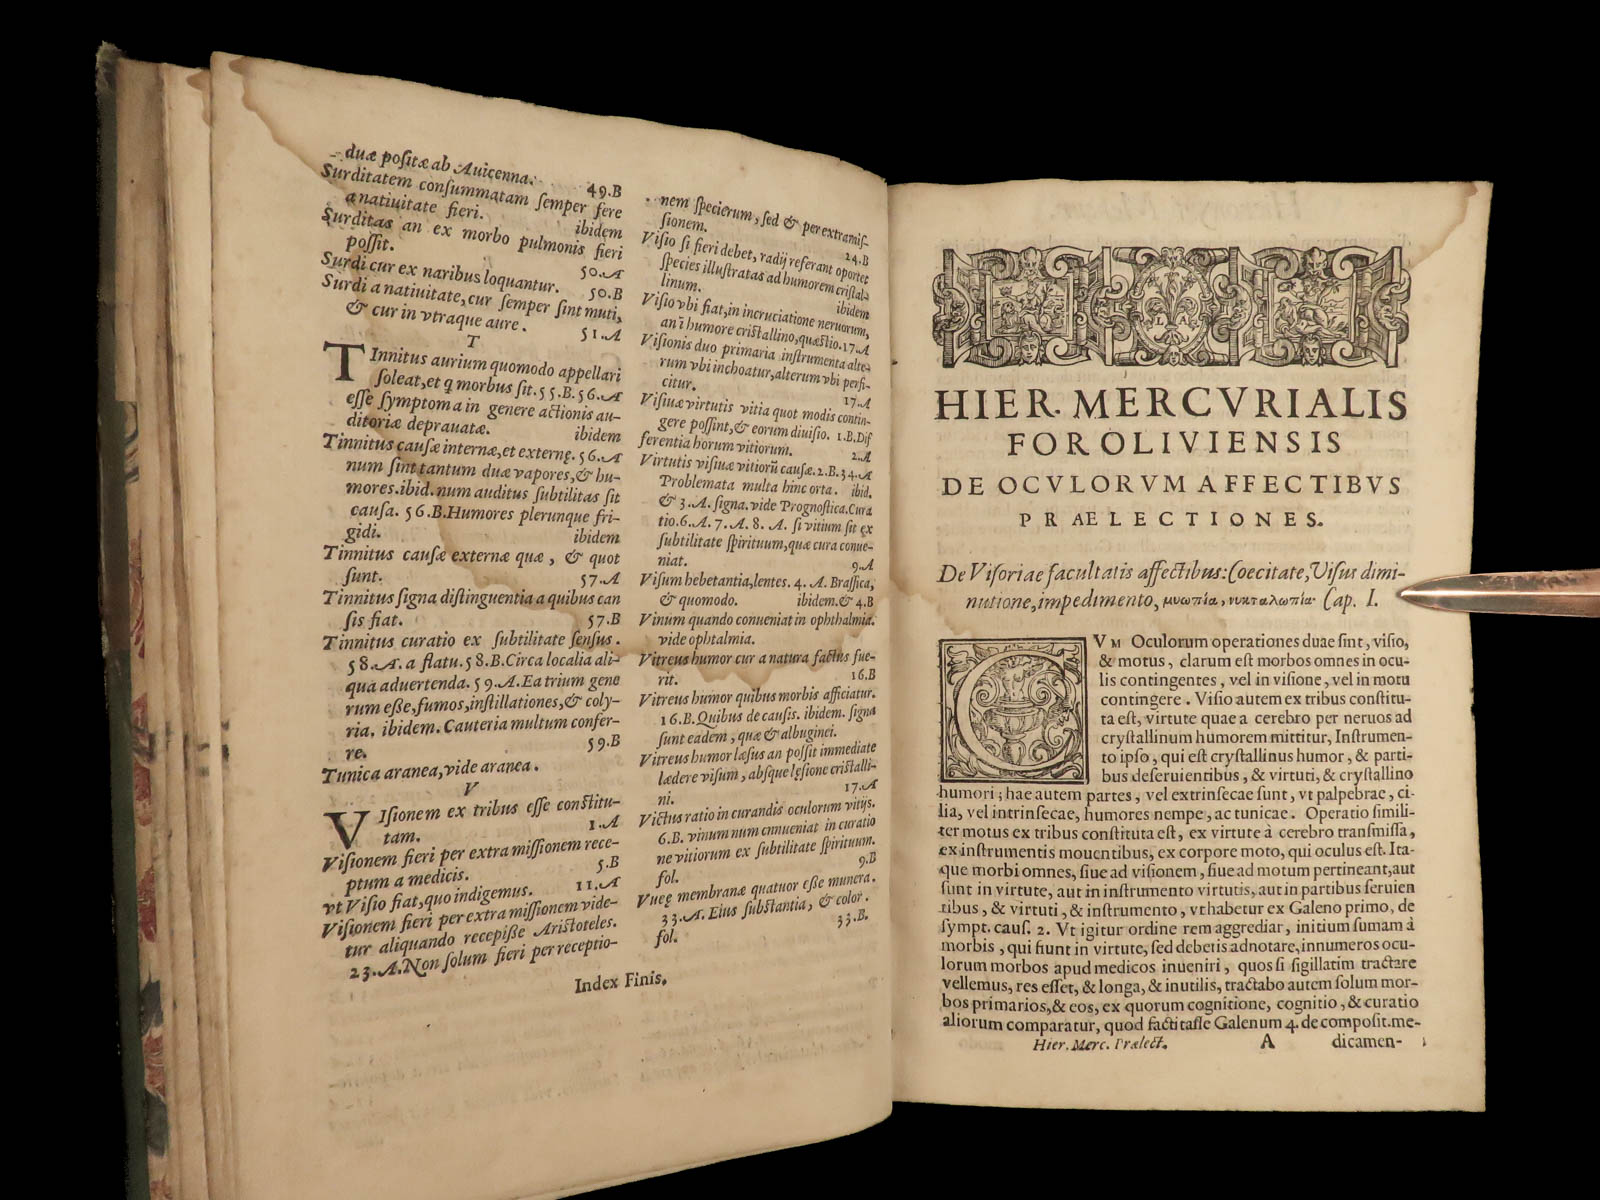 duæ poſitæ ab Auicenna. 49.B
Surditatem conſummatam ſemper fere
a natiuitate fieri. ibidem
Surditas an ex morbo pulmonis fieri
poſſit. 50.A
Surdi cur ex naribus loquantur. 50.B
Surdi a natiuitate, cur ſemper ſint muti,
& cur in vtraque aure. 51.A
T
TInnitus aurium quomodo appellari
ſoleat, et q morbus ſit. 55.B. 56.A
eſſe ſymptoma in genere actionis au-
ditoriæ deprauatæ. ibidem
Tinnitus cauſæ internæ, et externę. 56.A
num ſint tantum duæ vapores, & hu-
mores. ibid. num auditus ſubtilitas ſit
cauſa. 56.B. Humores plerunque fri-
gidi. ibidem
Tinnitus cauſæ externæ quæ, & quot
ſunt. 57.A
Tinnitus ſigna diſtinguentia a quibus can
ſis fiat. 57.B
Tinnitus curatio ex ſubtilitate ſenſus.
58.A. a flatu. 58.B. Circa localia ali-
qua aduertenda. 59.A. Ea trium gene
rum eſſe, fumos, inſtillationes, & coly-
ria. ibidem. Cauteria multum confer-
re. 59.B
Tunica aranea, vide aranea.
V
VIſionem ex tribus eſſe conſtitu-
tam. 1.A
Viſionem fieri per extra miſſionem rece-
ptum a medicis. 5.B
vt Viſio fiat, quo indigemus. 11.A
Viſionem fieri per extra miſſionem vide-
tur aliquando recepiſſe Ariſtoteles.
23.A. Non ſolum fieri per receptio-
nem ſpecierum, ſed & per extramiſ-
ſionem. 24.B
Viſio ſi fieri debet, radij referant oportet
ſpecies illuſtratas ad humorem criſtal-
linum. ibidem
Viſio vbi fiat, in incruciatione neruorum,
an ī humore criſtallino, quæſtio. 17.A
Viſionis duo primaria inſtrumenta alte-
rum vbi inchoatur, alterum vbi perfi-
citur. 17.A
Viſiuæ virtutis vitia quot modis contin-
gere poſſint, & eorum diuiſio. 1.B. Dif
ferentia horum vitiorum. 2.A
Virtutis viſiuæ vitiorū cauſæ. 2.B. 34.A
Problemata multa hinc orta. ibid.
& 3.A. ſigna. vide Prognoſtica. Cura
tio. 6.A. 7.A. 8.A. ſi vitium ſit ex
ſubtilitate ſpirituum, quæ cura conue-
niat. 9.A
Viſum hebetantia, lentes. 4.A. Braſſica,
& quomodo. ibidem. & 4.B
Vinum quando conueniat in ophthalmia.
vide ophtalmia.
Vitreus humor cur a natura factus fue-
rit. 16.B
Vitreus humor quibus morbis afficiatur.
16.B. Quibus de cauſis. ibidem. ſigna
ſunt eadem, quæ & albuginei.
Vitreus humor læſus an poſſit immediate
lædere viſum, abſque lęſione criſtalli-
ni. 17.A
Victus ratio in curandis oculorum vitijs.
6.B. vinum num cnnueniat in curatio
ne vitiorum ex ſubtilitate ſpirituum.
fol. 9.B
Vueę membranæ quatuor eſſe munera.
33.A. Eius ſubſtantia, & color.
fol. 33.B.
Index Finis.
HIER. MERCVRIALIS
FOROLIVIENSIS
DE OCVLORVM AFFECTIBVS
PRAELECTIONES.
De Viſoriae facultatis affectibus: Coecitate, Viſus dimi-
nutione, impedimento, μυωπία, νυκταλωπία. Cap. I.
CVM Oculorum operationes duae ſint, viſio,
& motus, clarum eſt morbos omnes in ocu-
lis contingentes, vel in viſione, vel in motu
contingere. Viſio autem ex tribus conſtitu-
ta eſt, virtute quae a cerebro per neruos ad
cryſtallinum humorem mittitur, Inſtrumen-
to ipſo, qui eſt cryſtallinus humor, & parti-
bus deſeruientibus, & virtuti, & cryſtallino
humori; hae autem partes, vel extrinſecae ſunt, vt palpebrae, ci-
lia, vel intrinſecae, humores nempe, ac tunicae. Operatio ſimili-
ter motus ex tribus conſtituta eſt, ex virtute à cerebro tranſmiſſa,
ex inſtrumentis mouentibus, ex corpore moto, qui oculus eſt. Ita-
que morbi omnes, ſiue ad viſionem, ſiue ad motum pertineant, aut
ſunt in virtute, aut in inſtrumento virtutis, aut in partibus ſeruien
tibus, & virtuti, & inſtrumento, vt habetur ex Galeno primo, de
ſympt. cauſ. 2. Vt igitur ordine rem aggrediar, initium ſumam à
morbis, qui fiunt in virtute, ſed debetis adnotare, innumeros ocu-
lorum morbos apud medicos inueniri, quos ſi ſigillatim tractare
vellemus, res eſſet, & longa, & inutilis, tractabo autem ſolum mor-
bos primarios, & eos, ex quorum cognitione, cognitio, & curatio
aliorum comparatur, quod factitaſſe Galenum 4. de compoſit. me-
Hier. Merc. Prælect. A dicamen-